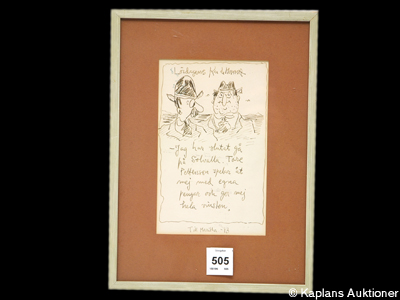 - Jag har slutat gå
på Solvalla. Tore
Pettersson spelar åt
mej med egna
pengar och ger mej
hela vinsten.
505
© Kaplans Auktioner